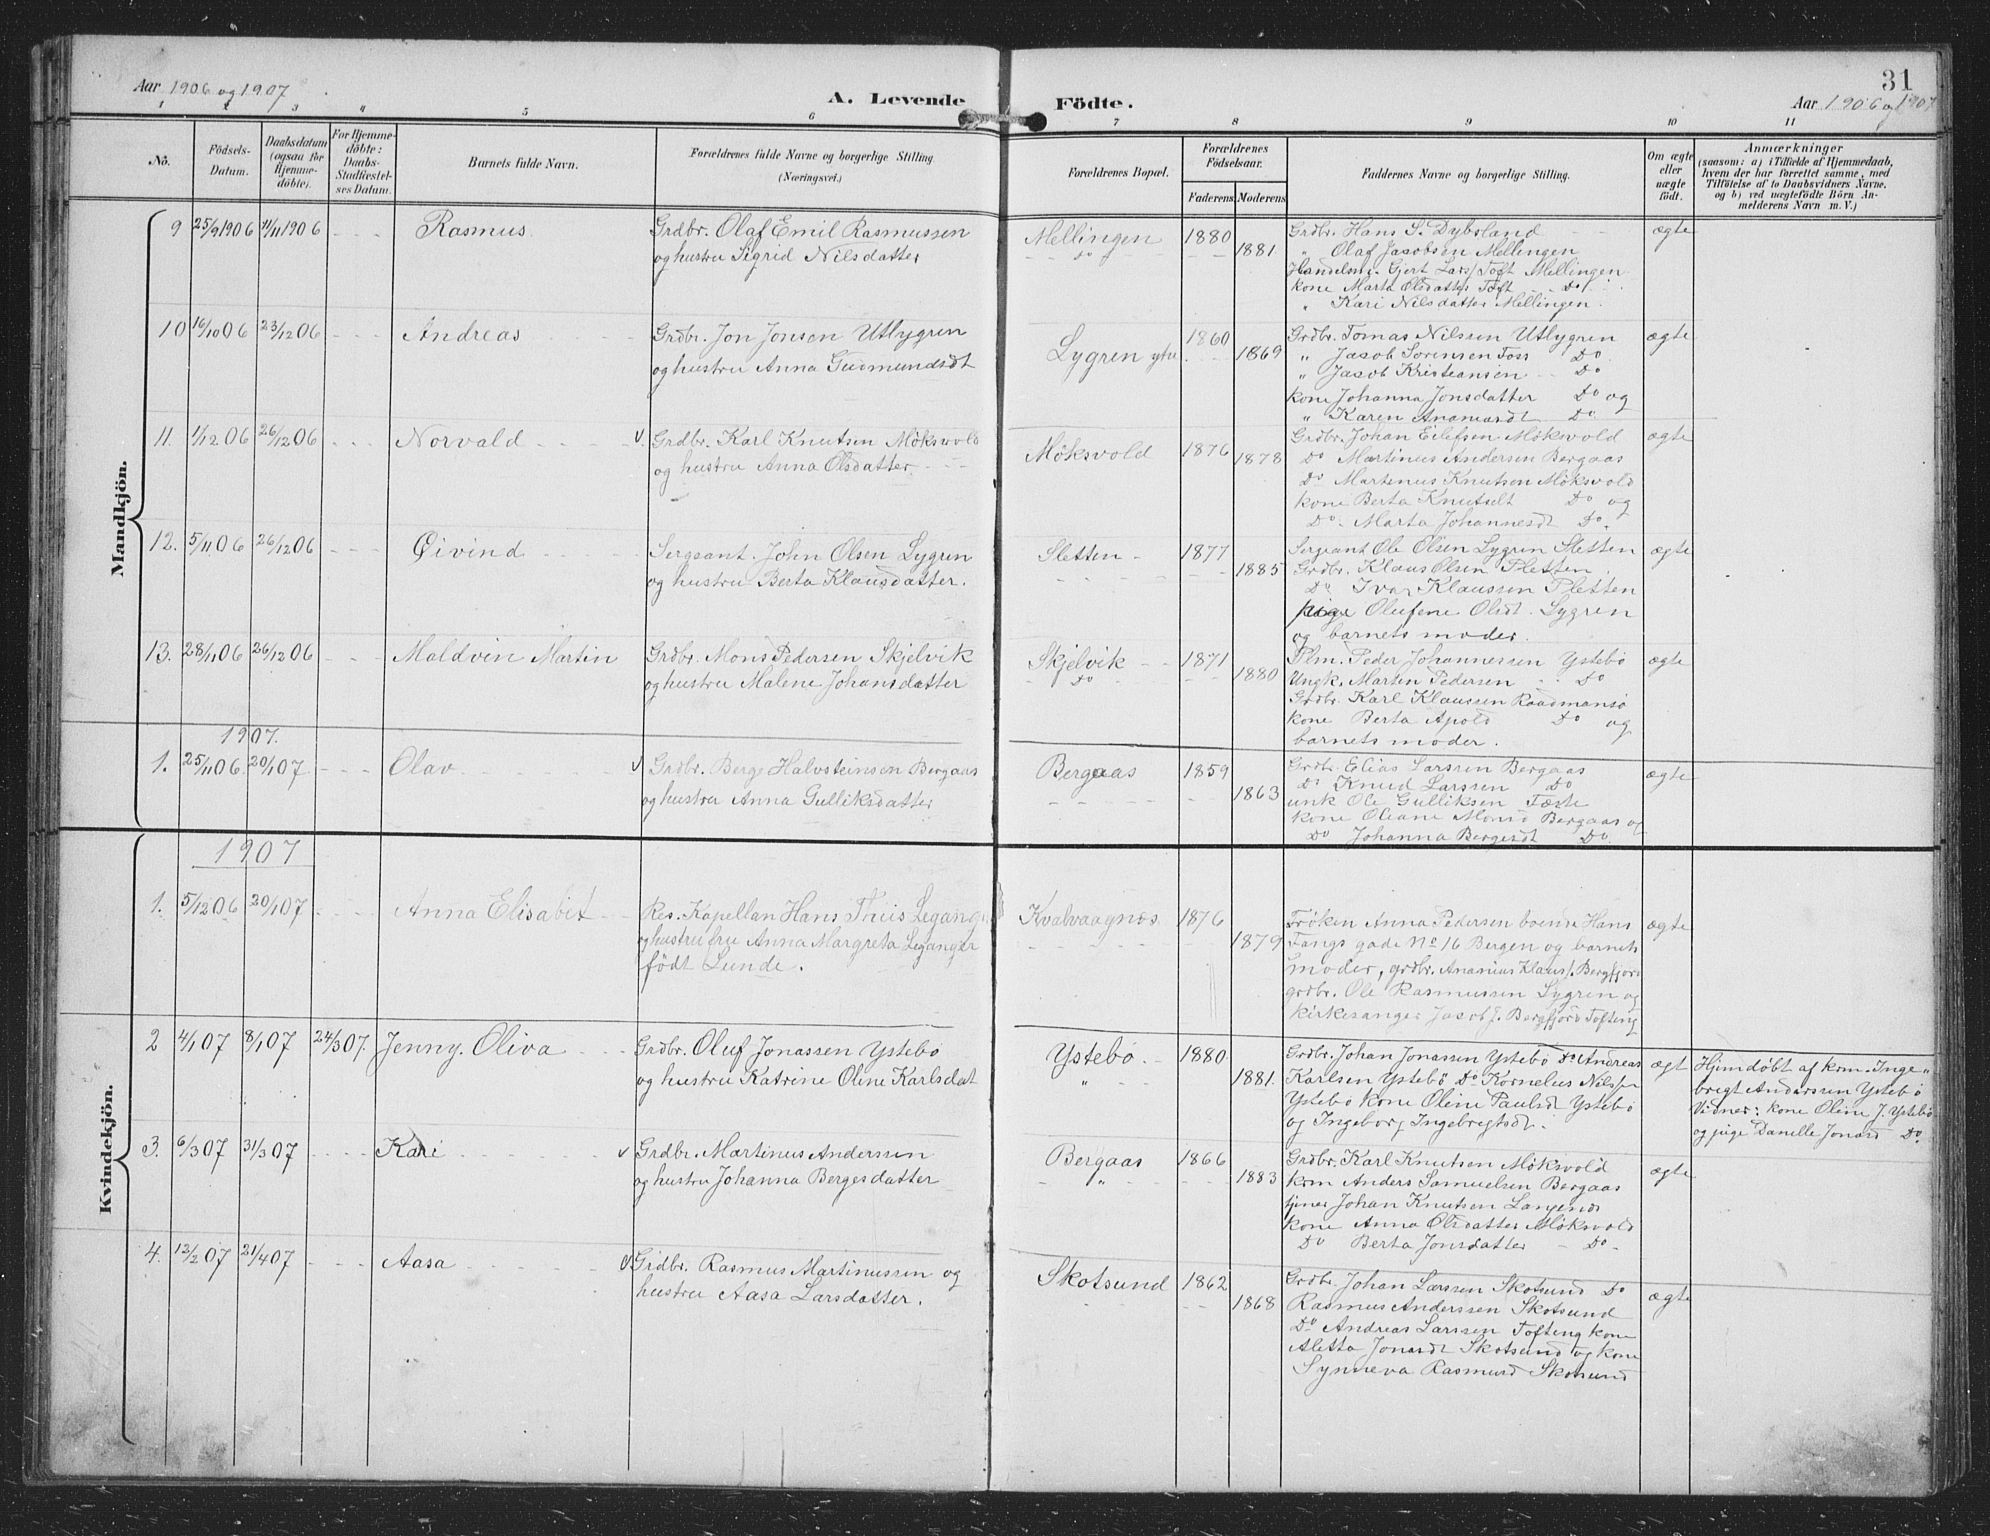 31
Aar 1906 og 1907
A. Levende Födte.
Aar 1906 og 1907
1 2 3 4 5 6 7 8 9 10 11
No.
Födsels-Datum.
Daabsdatum (ogsaa for Hjemme-döbte).
For Hjemme-döbte: Daabs-Stadfæstel-ses Datum.
Barnets fulde Navn.
Forældrenes fulde Navne og borgerlige Stilling.
(Næringsvei.)
Forældrenes Bopæl.
Forældrenes Födselsaar.
Faderens. Moderens.
Faddernes Navne og borgerlige Stilling.
Om ægte eller uægte födt.
Anmærkninger
(saasom: a) i Tilfælde af Hjemmedaab,
hvem der har forrettet samme, med
Tilföielse af to Daabsvidners Navne.
og b) ved uægtefödte Börn An-
melderens Navn m. V.)
Mandkjön.
9 25/9 1906 11/11 1906 Rasmus. Grdbr. Olaf Emil Rasmussen
og hustru Sigrid Nilsdatter
Mellingen 1880
Do 1881
Grdbr. Hans S. Dybsland
" Olaf Jacobsen Mellingen
Handelsm. Gjert Lars/ Toft Mellingen
kone Marta Olsdatter Toft Do
" Kari Nilsdatter Mellingen.
ægte
10 16/10 06 23/12 06 Andreas Grdbr. Jon Jonsen Utlygren
og hustru Anna Gudmundsdt
Lygren ytre 1860
1869
Grdbr. Tomas Nilssen Utlygren
" Jacob Sorensen Foss Do
" Jacob Kristiansen Do
kone Johanna Jonsdatter Do og
" Karen Do
ægte
11. 1/12 06 26/12 06 Norvald v. Grdbr. Karl Knutsen Möksvold
og hustru Anna Olsdatter
Möksvold 1876
1878
Grdbr. Johan Eilefsen Möksvold
Do Martinus Andersen Bergaas
Do Martinus Knutsen Möksvold
kone Berta Knutsdt Do og
Do. Marta Johannesdt Do.
ægte
12. 5/11 06 26/12 06 Öivind Sergeant John Olsen Lygren
og hustru Berta Klausdatter.
Sletten 1877
1885
Sergeant Ole Olsen Lygren Sletten
Grdbr. Klaus Olsen Sletten
Do Ivar Klaussen Sletten
pige Olufene Olsdt. Lygren
og barnets moder.
ægte
13. 28/11 06 26/12 06 Maldvin Martin Grdbr. Mons Pedersen Skjelvik
og hustru Malene Johansdatter
Skjelvik 1871
Do 1880
Plm. Peder Johannessen Ystebö
Ungk. Marten Pedersen Do
Grdbr. Karl Klaussen Raadmansö
kone Berta Apold Do og
barnets moder.
ægte
1907.
1. 25/11 06 20/1 07 Olav v Grdbr. Berge Halvsteinsen Bergaas
og hustru Anna Gulliksdatter
Bergaas 1859
1863
Grdbr. Elias Larssen Bergaas
Do Knud Larssen Do
unk Ole Gulliksen Tæste
kone Oliane Monsd Bergaas og
Do Johanna Bergesdt Do
ægte
Kvindekjön.
1907
1. 5/12 06 20/1 07 Anna Elisabet Res. Kapellan Hans Thiis Leganger
og hustru fru Anna Margreta Leganger
födt Lunde.
Kvalvaagnes 1876
1879
Fröken Anna Pedersen boende Hans
Tangs gade No 16 Bergen og barnets
moder, grdbr. Ananias Klaus/. Bergfjord
grdbr. Ole Rasmussen Lygren og
kirkesanger Jacob J. Bergfjord Tofteng
ægte
2 4/1 07 8/1 07 24/3 07. Jenny Oliva Grdbr. Oluf Jonassen Ystebö
og hustru Katrine Oline Karlsdat
Ystebö 1880
" 1881.
Grdbr. Johan Jonassen Ystebö Do Andreas
Karlsen Ystebö Do Kornelius Nilssen
Ystebö kone Oline Paulsd Ystebö
og Ingeborg Ingebregtsdt.
ægt
Hjimdöbt af krm. Inge"
bregt Anderssen Ystebö
Vidner: kone Oline J. Ystebö
og pige Danelle Jonasd Do
3. 6/3 07 31/3 07 Kari v Grdbr. Martinus Anderssen
og hustru Johanna Bergesdatter
Bergaas 1866
" 1883
Grdbr. Karl Knutsen Möksvold
krm Anders Samuelsen Bergaas
tjener Johan Knutsen Langenes
kone Anna Olsdatter Möksvold
Do Berta Jonsdatter Do.
ægte
4. 12/2 07 21/4 07 Aasa v Grdbr. Rasmus Martinussen og
hustru Aasa Larsdatter.
Skotsund 1862
1868
Grdbr. Johan Larssen Skotsund Do
Rasmus Anderssen Skotsund
Do Andreas Larssen Tofteng kone
Aletta Jonasdt Skotsund og kone
Synneva Rasmusd Skotsund
ægte